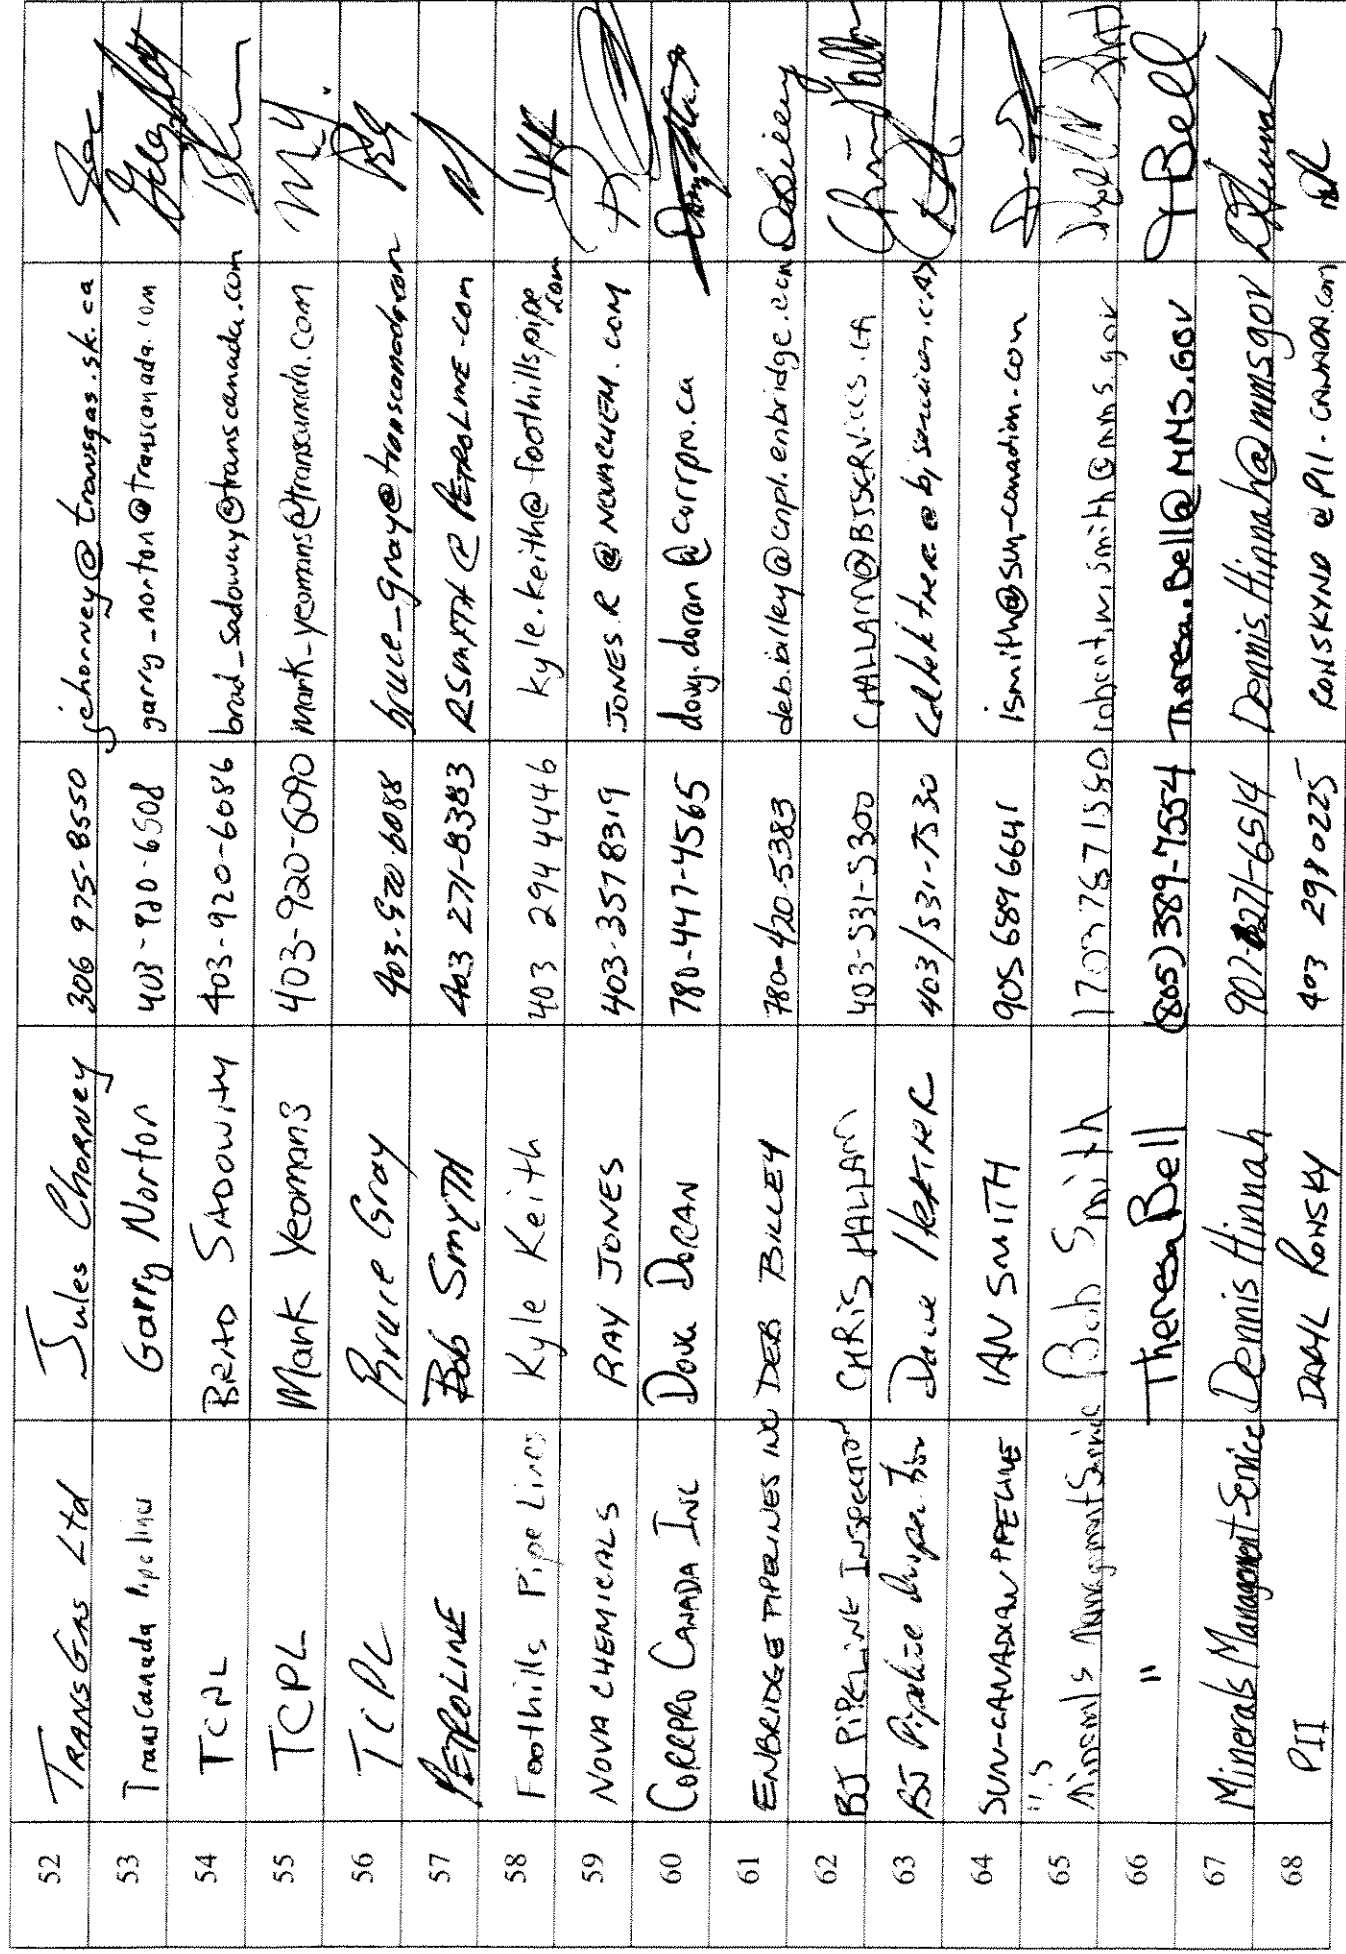 52 TRANSGAS Ltd Jules CHORNEY 306 975-8550 jchorney@transgas.sk.ca
53 TransCanada Pipeline Garry Norton 403-920-6508 garry_norton@transcanada.com
54 TCPL BRAD SADOWAY 403-920-6086 brad_sadoway@transcanada.com
55 TCPL Mark Yeomans 403-920-6090 mark_yeomans@transcanada.com M Y.
56 TCPL Bruce Gray 403-920 6088 bruce_gray@transcanada.com BG
57 PETROLINE Bob Smyth 403 271-8383 RSMYTH@PETROLINE.com
58 Foothills Pipe Lines Kyle Keith 403 294 4446 kyle.keith@foothillspipe.com
59 NOVA CHEMICALS RAY JONES 403-357 8319 JONES.R@NOVACHEM.COM
60 CORRPRO CANADA INC DOUG DORAN 780-447-4565 doug.doran@corrpro.ca
61 ENBRIDGE PIPELINES INC DEB BILLEY 780-420-5383 deb.billey@cnpl.enbridge.com DBilley
62 BJ PIPELINE INSPECTION CHRIS HALLAM 403-531-5300 CHALLAM@BJSERVICES.CA Chris Hallam
63 BJ Pipeline Inspection Dave 403/531-7530
64 SUN-CANADIAN PIPELINE IAN SMITH 905 689 6641 ismith@sun-canadian.com
65 U.S Minerals Management Service Bob Smith 1703 787 1580 robert.w.smith@mms.gov
66 " Theresa Bell (805) 389-7554 Theresa.Bell@MMS.GOV T Bell
67 Minerals Management Service Dennis Hinnah 907-271-6514 Dennis.Hinnah@mms.gov
68 PII DARYL RONSKY 403 298 0225 RONSKYND@PII-CANADA.com